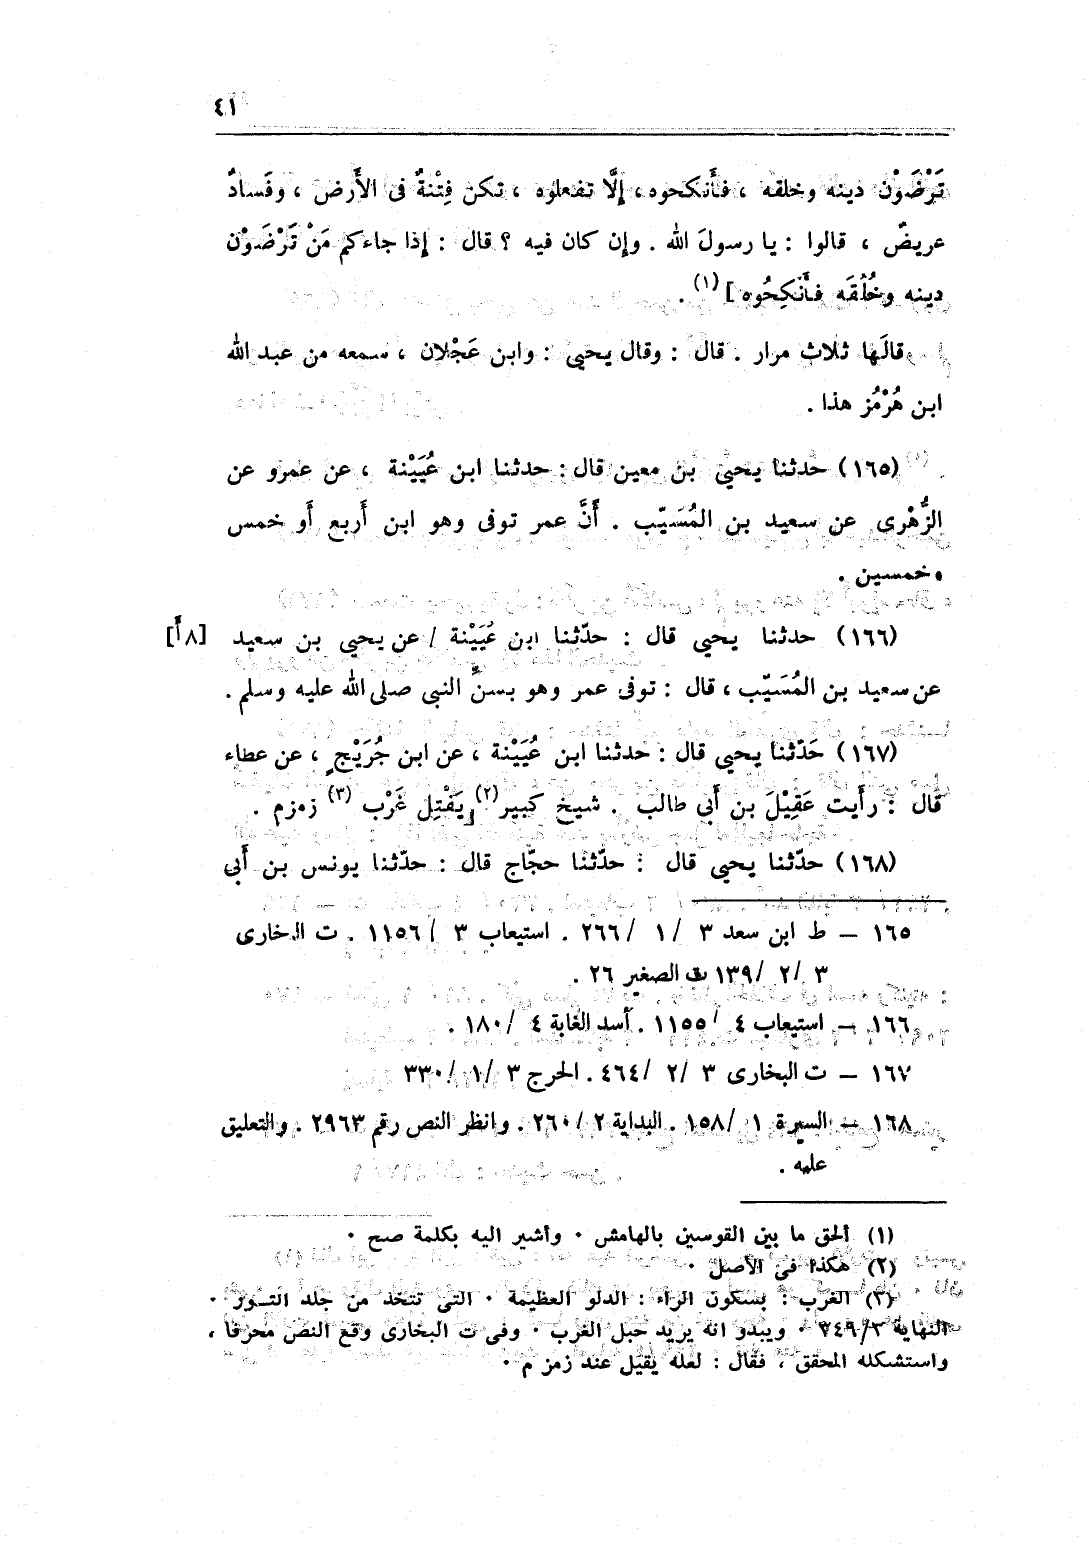 ٤١
تَرْضَوْن دينه وخلقه ، فأَنكحوه ، إِلَّا تفعلوه ، تكن فِتْنةٌ فى الأَرض ، وفَسادٌ
عريضٌ ، قالوا : يا رسولَ الله . وإن كان فيه ؟ قال : إِذا جاءكم مَنْ تَرْضَوْن
دينه وخُلُقَه فأَنكِحُوه ] (١) .
قالَها ثلاث مرار . قال : وقال يحيى : وابن عَجْلان ، سمعه من عبد الله
ابن هُرْمُز هذا .
(١٦٥) حدثنا يحيى بن معين قال : حدثنا ابن عُيَيْنة ، عن عمرو عن
الزُّهْرى عن سعيد بن المُسَيّب . أَنَّ عمر توفى وهو ابن أَربع أَو خمس
وخمسين .
(١٦٦) حدثنا يحيى قال : حدّثنا ابن عُيَيْنة / عن يحيى بن سعيد [٨أَ]
عن سعيد بن المُسَيّب ، قال : توفى عمر وهو بسنّ النبى صلى الله عليه وسلم .
(١٦٧) حَدّثنا يحيى قال : حدثنا ابن عُيَيْنة ، عن ابن جُرَيْجٍ ، عن عطاء
قال : رأَيت عَقِيْلَ بن أَبى طالب . شيخ كبير (٢) يَفْتِل غَرْب (٣) زمزم .
(١٦٨) حدّثنا يحيى قال : حدّثنا حجّاج قال : حدّثنا يونس بن أَبى
١٦٥ – ط ابن سعد ٣ / ١ / ٢٦٦ . استيعاب ٣ / ١١٥٦ . ت البخارى
٣ / ٢ / ١٣٩ ت الصغير ٢٦ .
١٦٦ – استيعاب ٤ / ١١٥٥ . أسد الغابة ٤ / ١٨٠ .
١٦٧ – ت البخارى ٣ / ٢ / ٤٦٤ . الجرح ٣ / ١ / ٣٣٠
١٦٨ – السيرة ١ / ١٥٨ . البداية ٢ / ٢٦٠ . وانظر النص رقم ٢٩٦٣ . والتعليق
عليه .
(١) ألحق ما بين القوسين بالهامش . وأشير اليه بكلمة صح .
(٢) هكذا فى الأصل .
(٣) الغرب : بسكون الراء : الدلو العظيمة . التى تتخذ من جلد الثور .
النهاية ٣/٣٤٩ . ويبدو انه يريد حبل الغرب . وفى ت البخارى وقع النص محرفا ،
واستشكله المحقق ، فقال : لعله يقيل عند زمز م .